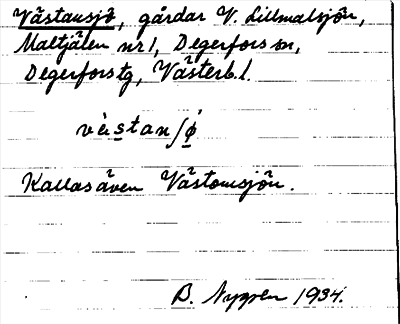 Västansjö, gårdar V. Lillmalsjön,
Maltjälen nr 1, Degerfors sn,
Degerfors tg, Västerb. l.
Kallas även Västomsjön.
B. Nygren 1934.